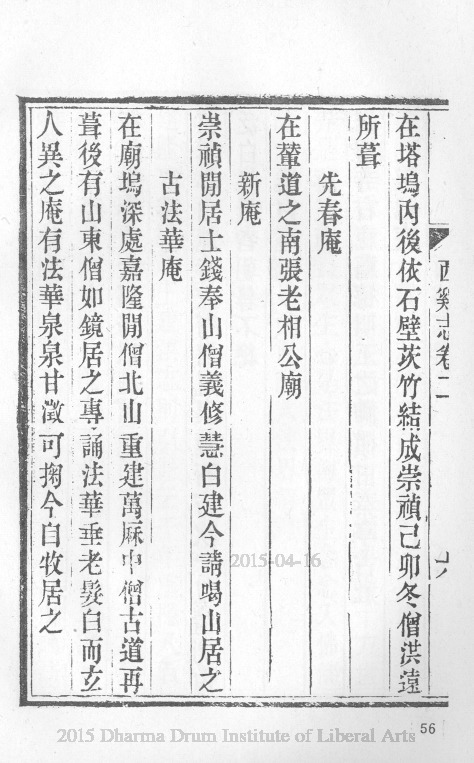 西谿志卷二
在塔塢內後依石壁茨竹結成崇禎己卯冬僧洪遠
所葺
先春庵
在輦道之南張老相公廟
新庵
崇禎閒居士錢奉山僧義修慧白建今請喝山居之
古法華庵
在廟塢深處嘉隆閒僧北山重建萬厤中僧古道再
葺後有山東僧如鏡居之專誦法華垂老髮白而玄
人異之庵有法華泉泉甘澂可掬今自牧居之
2015-04-16
56
2015 Dharma Drum Institute of Liberal Arts